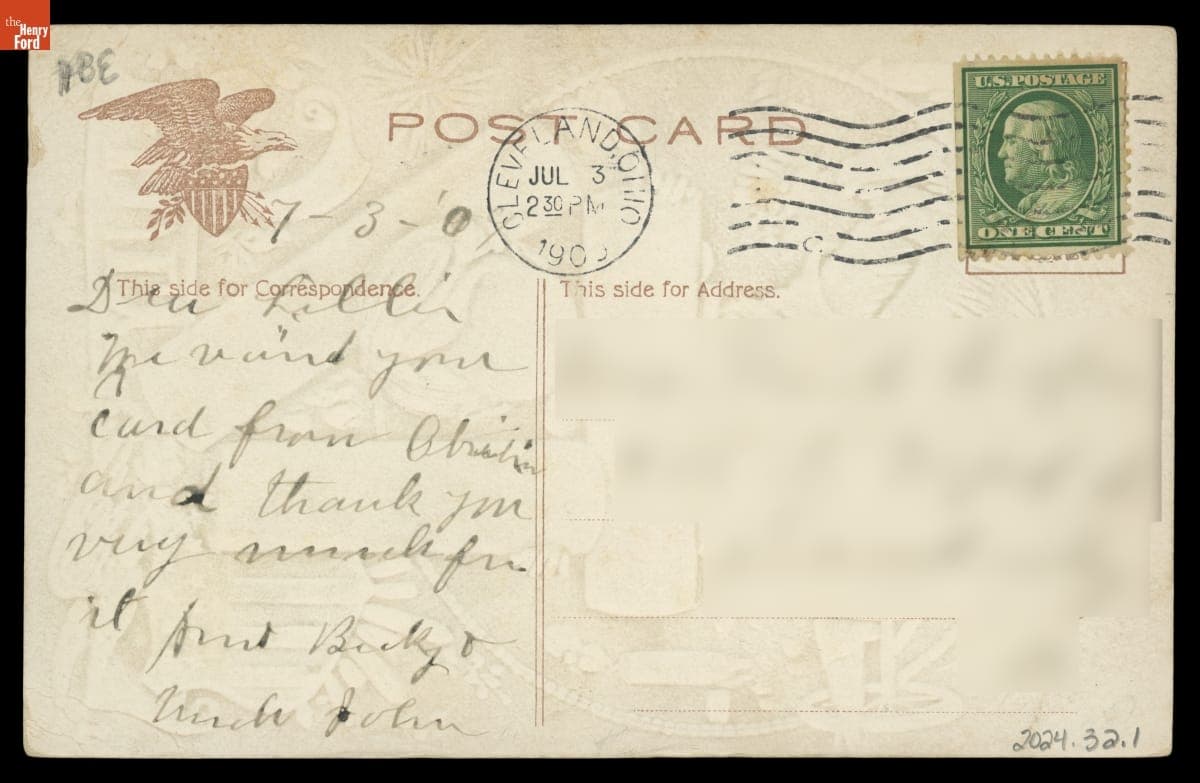 the
Henry
Ford
U.S. POSTAGE
POST CARD
CLEVELAND, OHIO
JUL 3
2 30 PM
190
C.
ONE CENT
7-3-'0
This side for Correspondence.
This side for Address.
Dear Lillie
We your
card from
and thank you
very much for
it Aunt Becky &
Uncle John
2024.32.1